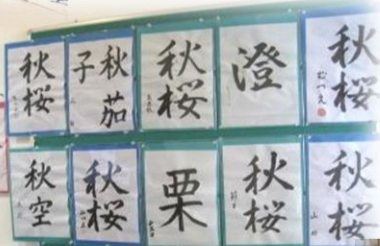 秋桜
秋茄子
秋桜
澄
秋桜
秋空
秋桜
栗
秋桜
秋桜